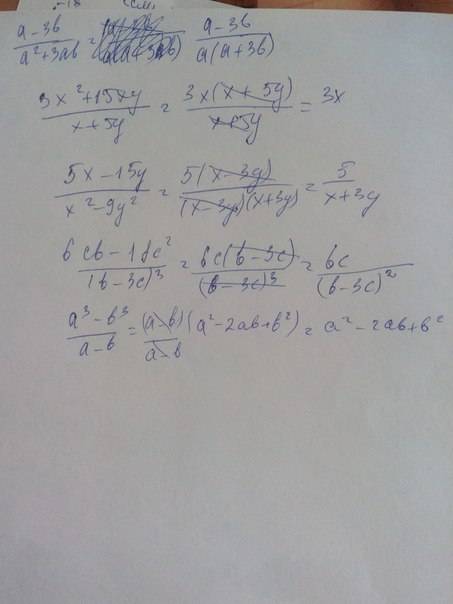 (a-3b)/(a²+3ab) = (a-3b)/(a(a+3b))
(3x²+15xy)/(x+5y) = (3x(x+5y))/(x+5y) = 3x
(5x-15y)/(x²-9y²) = (5(x-3y))/((x-3y)(x+3y)) = 5/(x+3y)
(6cb-18c²)/(b-3c)³ = (6c(b-3c))/(b-3c)³ = 6c/(b-3c)²
(a³-b³)/(a-b) = ((a-b)(a²-2ab+b²))/(a-b) = a²-2ab+b²